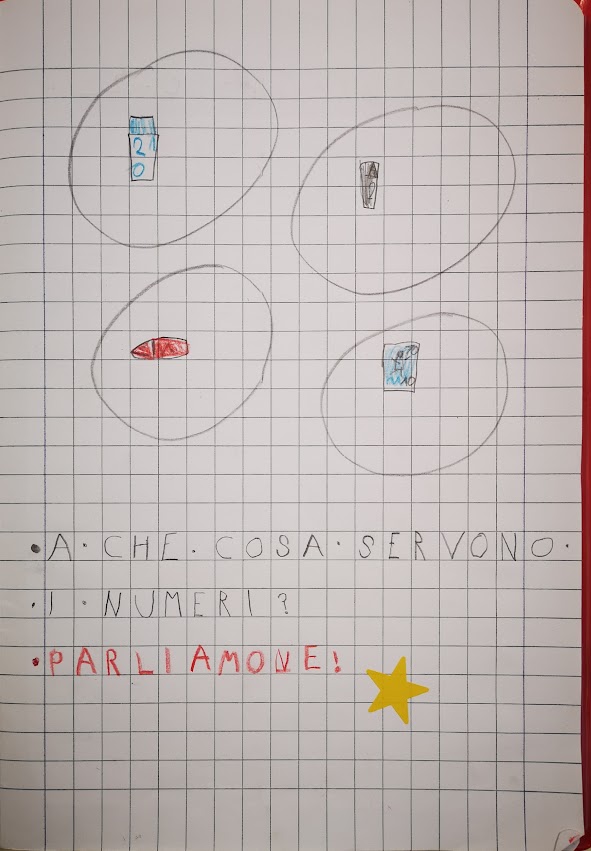 21
0
•A·CHE·COSA·SERVONO·
·I·NUMERI?
•PARLIAMONE!